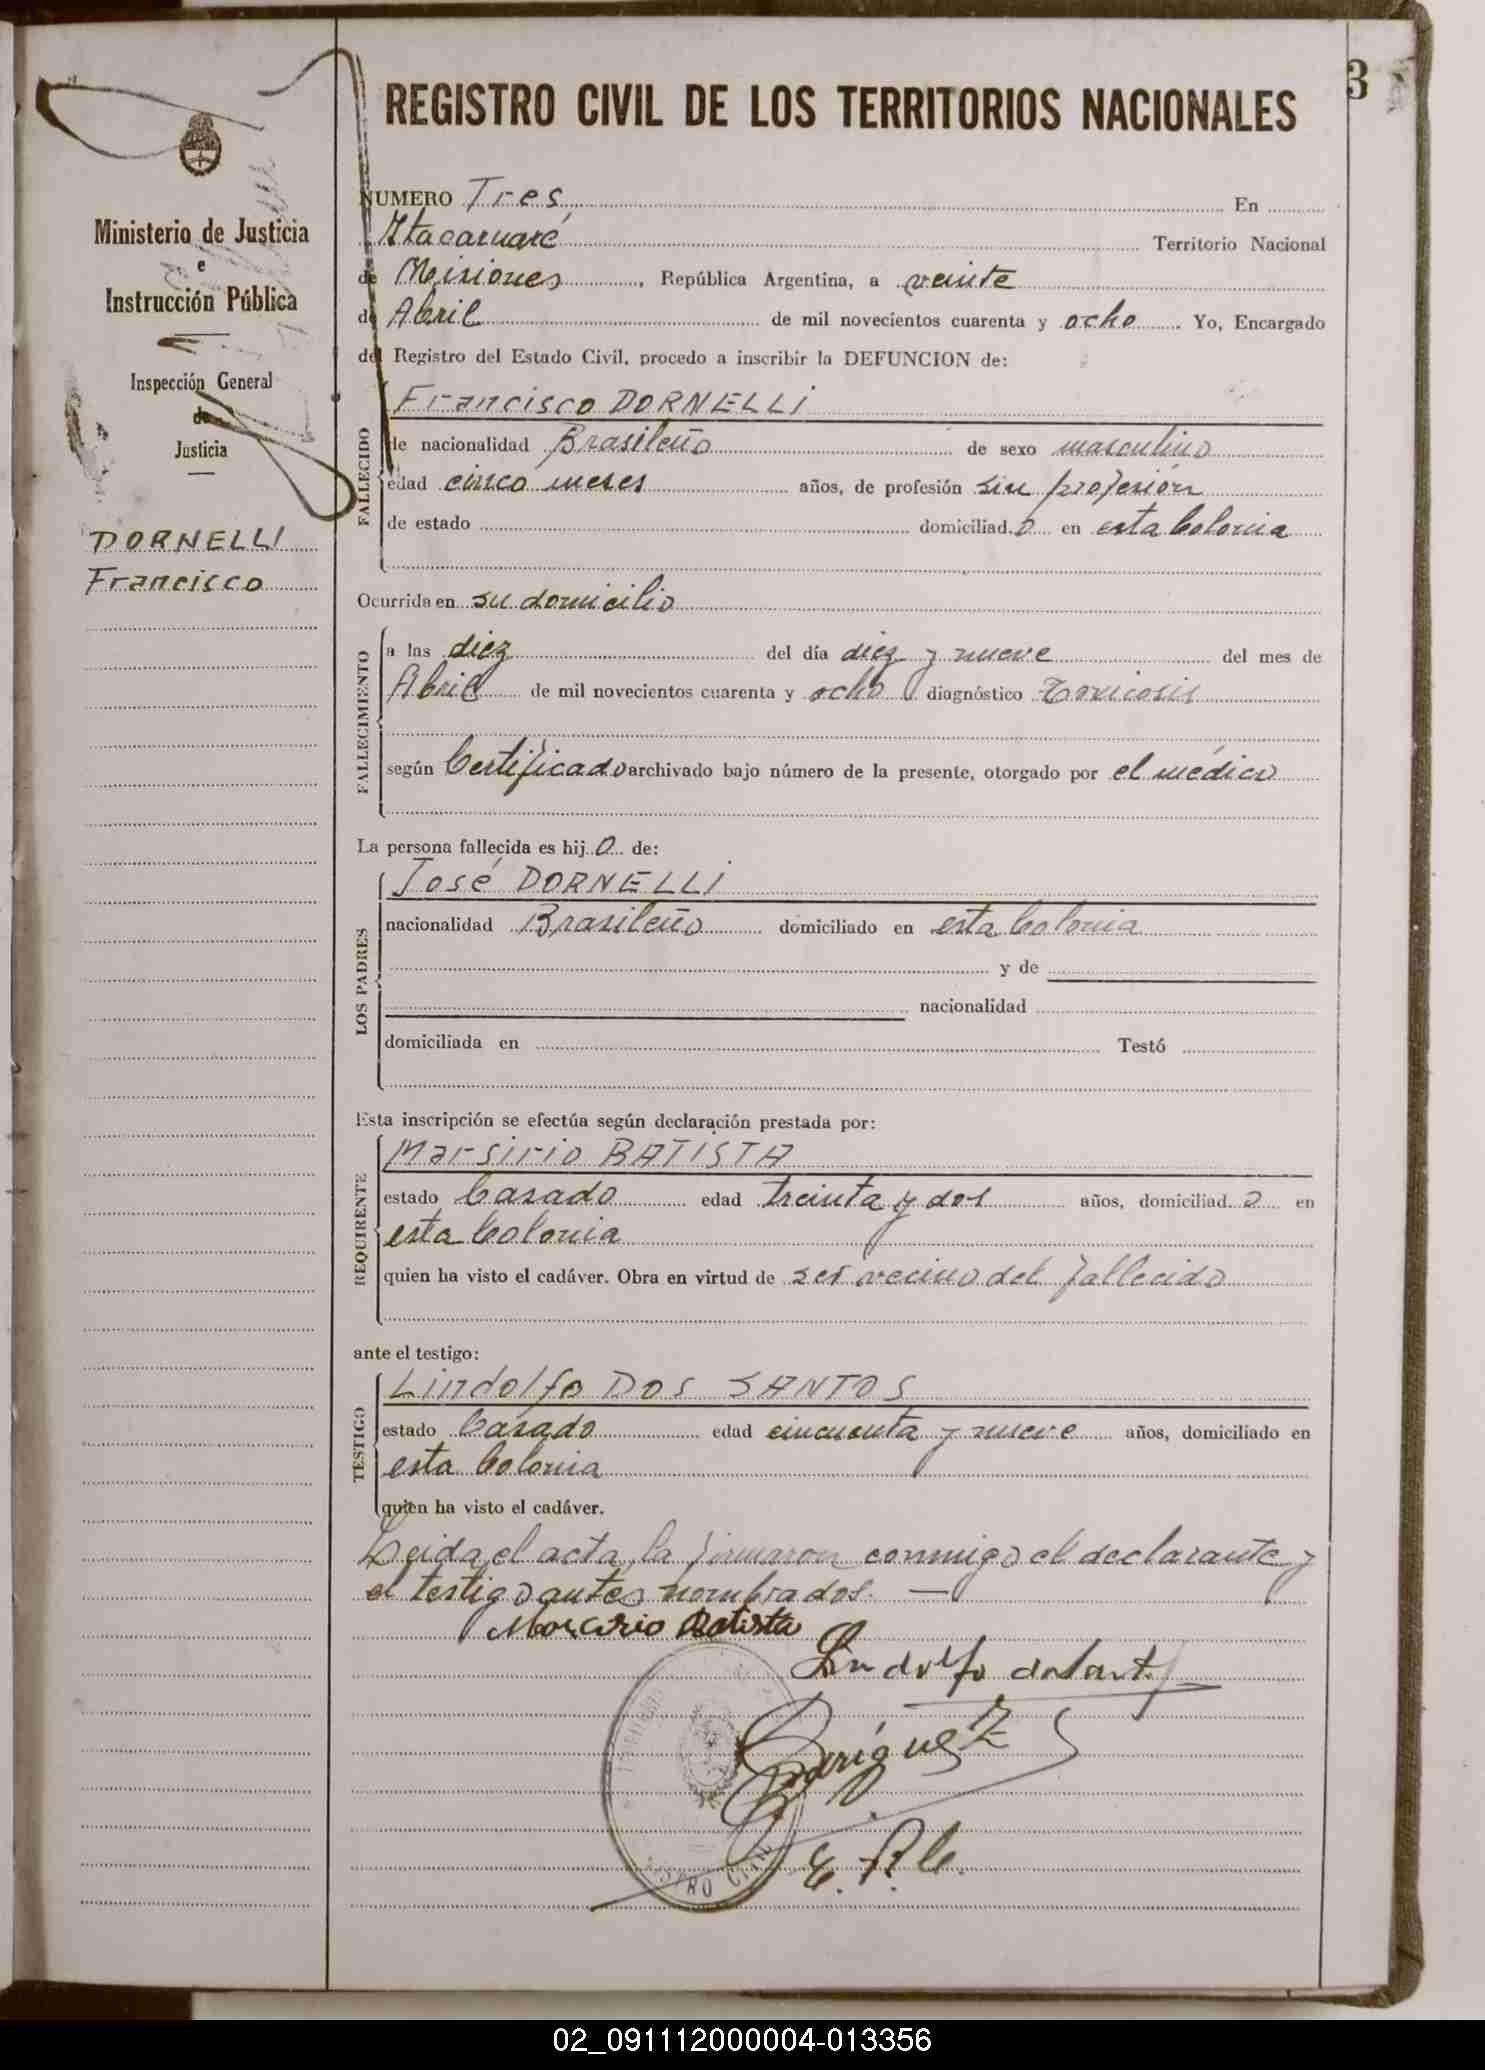 3
REGISTRO CIVIL DE LOS TERRITORIOS NACIONALES
Ministerio de Justicia
e
Instrucción Pública
Inspección General
de
Justicia
DORNELLI
Francisco
NUMERO Tres En
Itacaruaré Territorio Nacional
de Misiones, República Argentina, a veinte
de Abril de mil novecientos cuarenta y ocho. Yo, Encargado
del Registro del Estado Civil, procedo a inscribir la DEFUNCION de:
FALLECIDO
Francisco DORNELLI
de nacionalidad Brasileño de sexo masculino
edad cinco meses años, de profesión sin profesión
de estado domiciliad o en esta Colonia
Ocurrida en su domicilio
FALLECIMIENTO
a las diez del día diez y nueve del mes de
Abril de mil novecientos cuarenta y ocho diagnóstico Toxicosis
según Certificado archivado bajo número de la presente, otorgado por el médico
La persona fallecida es hij o de:
LOS PADRES
José DORNELLI
nacionalidad Brasileño domiciliado en esta Colonia
y de
nacionalidad
domiciliada en Testó
Esta inscripción se efectúa según declaración prestada por:
REQUIRENTE
Marsirio BATISTA
estado Casado edad treinta y dos años, domiciliad o en
esta Colonia
quien ha visto el cadáver. Obra en virtud de ser vecino del fallecido
ante el testigo:
TESTIGO
Lindolfo DOS SANTOS
estado Casado edad cincuenta y nueve años, domiciliado en
esta Colonia
quien ha visto el cadáver.
Leida el acta la firmaron conmigo el declarante y
el testigo antes nombrados. —
Batista
Lindolfo
E. R. C.
02_091112000004-013356